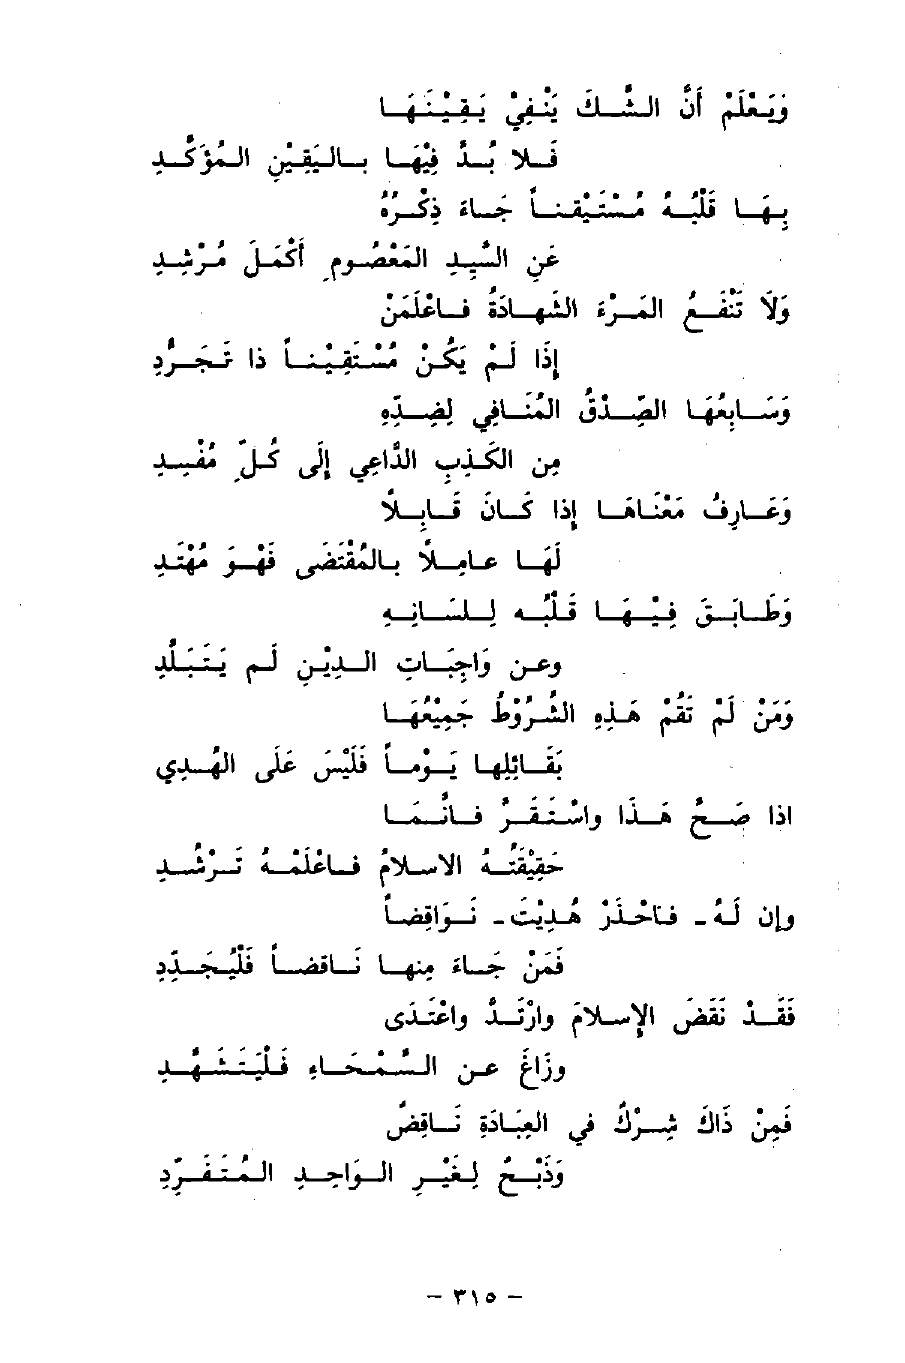 وَيَعْلَمْ أَنَّ الشَّكَ يَنْفِيْ يَقِيْنَهَا
فَلا بُدَّ فِيْهَا بالْيَقِيْنِ المُؤَكَّدِ
بِهَا قَلْبُهُ مُسْتَيْقِناً جَاءَ ذِكْرُهُ
عَنِ السَّيِدِ المَعْصُومِ أَكْمَلَ مُرْشِدِ
وَلَا تَنْفَعُ المَرْءَ الشَّهادَةُ فاعْلَمَنْ
إِذَا لَمْ يَكُنْ مُسْتَقِيْناً ذا تَجَرُّدِ
وَسَابِعُهَا الصِّدْقُ المُنَافِي لِضِدِّهِ
مِن الكَذِبِ الدَّاعِي إِلَى كُلِّ مُفْسِدِ
وَعَارِفُ مَعْنَاهَا إِذا كَانَ قَابِلًا
لَهَا عامِلًا بالمُقْتَضَى فَهْوَ مُهْتَدِ
وَطَابَقَ فِيْهَا قَلْبُه لِلسَانِهِ
وعن وَاجِبَاتِ الدِيْنِ لَم يَتَبَلَّدِ
وَمَنْ لَمْ تَقُمْ هَذِهِ الشُّرُوْطُ جَمِيْعُهَا
بَقَائِلِها يَوْماً فَلَيْسَ عَلَى الهُدِي
اذا صَحَّ هَذَا واسْتَقَرَّ فانَّمَا
حَقِيْقَتُهُ الاسلامُ فاعْلَمْهُ تَرْشُدِ
وإن لَهُ - فَاحْذَرْ هُدِيْتَ - نَوَاقِضاً
فَمَنْ جَاءَ مِنها نَاقضاً فَلْيُجَدِّدِ
فَقَدْ نَقَضَ الإسلامَ وارْتَدَّ واعْتَدَى
وزَاغَ عن السَّمْحَاءِ فَلْيَتَشَهَّدِ
فَمِنْ ذَاكَ شِرْكٌ في العِبَادَةِ نَاقِضٌ
وَذَبْحٌ لِغَيْرِ الوَاحِدِ المُتَفَرِّدِ
- ٣١٥ -